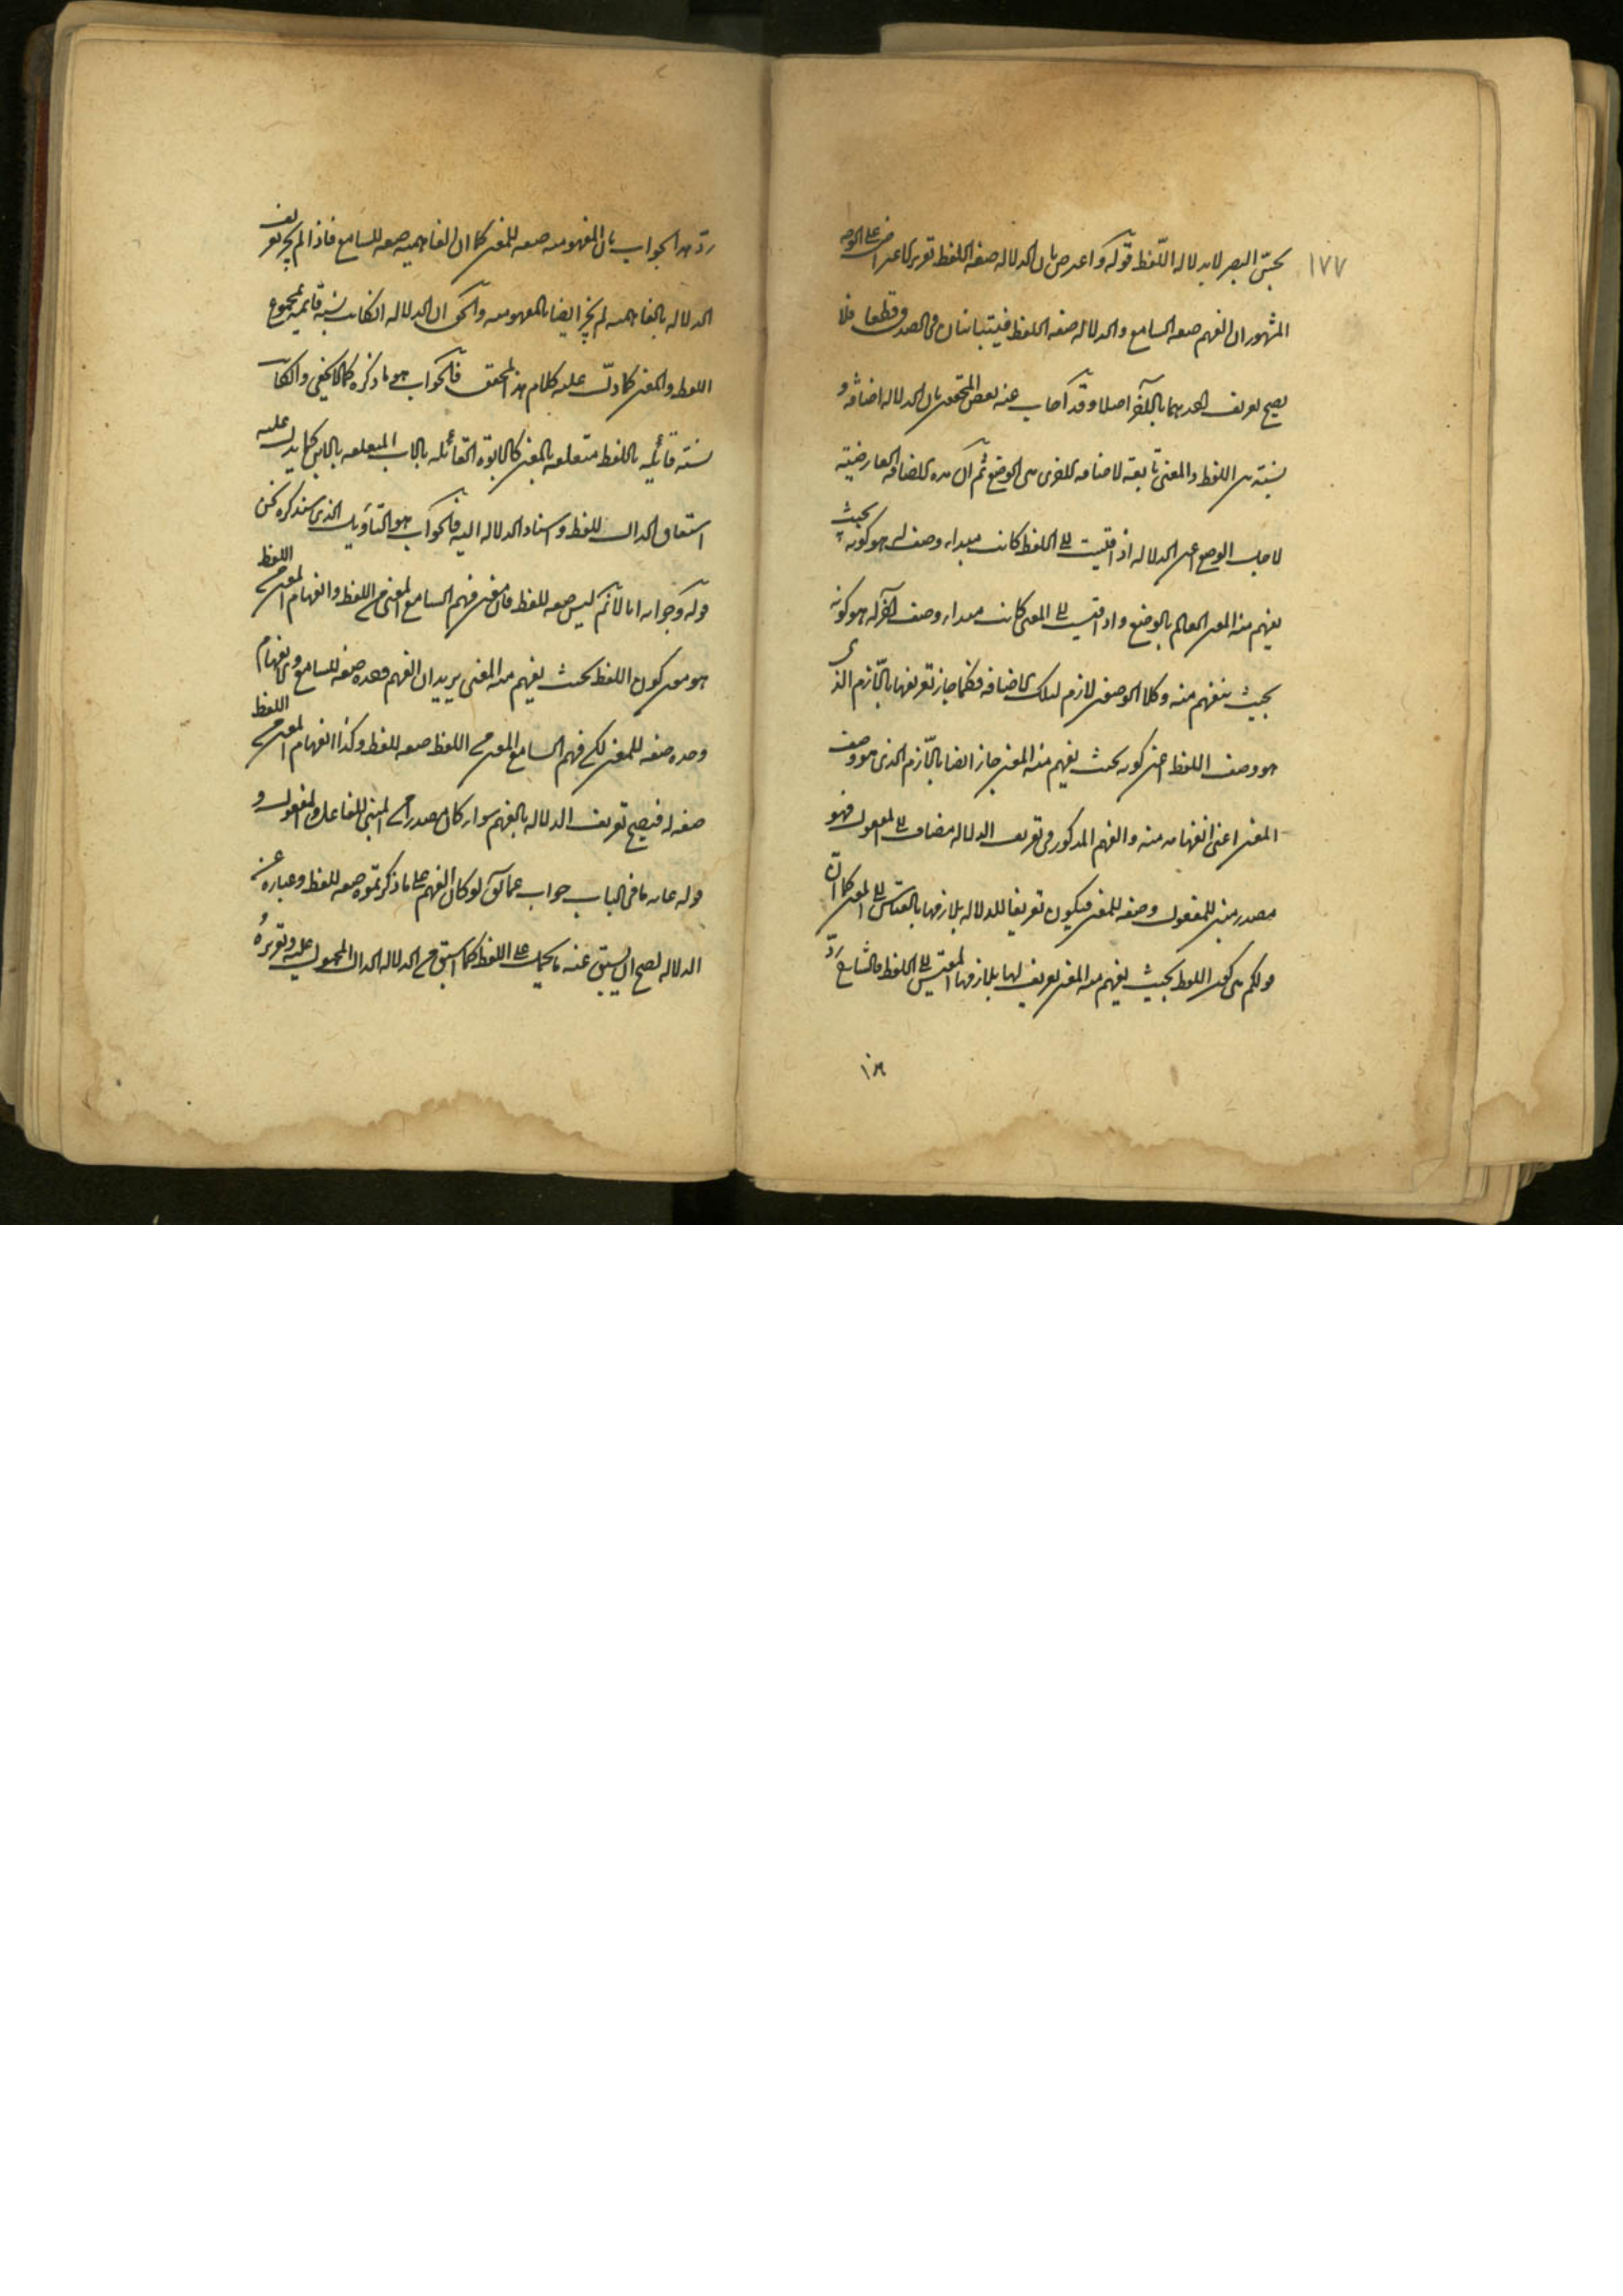 ١٧٧
بحسّ البصر لا بدلالة اللفظ قوله واعترض بان الدلالة صفة اللفظ تقرير الاعتراض على الوجه
المشهور ان الفهم صفة السامع والدلالة صفة اللفظ فيتباينان في الصدق قطعا فلا
يصح تعريف احدهما بالآخر اصلا وقد اجاب عنه بعض المحققين بان الدلالة اضافة و
نسبة بين اللفظ والمعنى تابعة لاضافة اخرى هي الوضع ثم ان هذه الاضافة العارضية
لاجل الوضع اعنى الدلالة اذا قيست الى اللفظ كانت مبداء وصف له هو كونه بحيث
يفهم منه المعنى العالم بالوضع واذا قيست الى المعنى كانت مبداء وصف آخر له هو كونه
بحيث ينفهم منه وكلا الوصفين لازم لتلك الاضافة فكما جاز تعريفها باللازم الذي
هو وصف اللفظ اعنى كونه بحيث يفهم منه المعنى جاز ايضا باللازم الذي هو وصف
المعنى اعنى انفهامه منه والفهم المذكور في تعريف الدلالة مضاف الى المفعول فهو
مصدر مبنى للمفعول وصفة للمعنى فيكون تعريفا للدلالة بلازمها بالقياس الى المعنى كما ان
قولكم هى كون اللفظ بحيث يفهم منه المعنى تعريف لها بلازمها المقيس الى اللفظ فالشارح ردّ
ردّ هذا الجواب بان المفهومية صفة للمعنى كما ان الفاهمية صفة للسامع فاذا لم يجز تعريف
الدلالة بالفاهمية لم يجز ايضا بالمفهومية والحق ان الدلالة ان كانت نسبة قائمة بمجموع
اللفظ والمعنى كما دلّ عليه كلام هذا المحقق فالجواب هو ما ذكره كما لا يخفى وان كانت
نسبة قائمة باللفظ متعلقة بالمعنى كالابوة القائمة بالاب المتعلقة بالابن كما يدل عليه
اشتقاق الدال للفظ واسناد الدلالة اليه فالجواب هو التأويل الذى سنذكره لكن
قوله وجوابه انا لا نم انه ليس صفة للفظ فان معنى فهم السامع المعنى من اللفظ وانفهام المعنى من اللفظ
هو معنى كون اللفظ بحيث يفهم منه المعنى يريد ان الفهم وحده صفة للسامع والانفهام
وحده صفة للمعنى لكن فهم السامع المعنى من اللفظ صفة للفظ وكذا انفهام المعنى من اللفظ
صفة له فيصح تعريف الدلالة بالفهم سواء كان مصدرا من المبنى للفاعل او المفعول و
قوله غاية ما في الباب جواب عما يقال لو كان الفهم على ما ذكرتموه صفة للفظ وعبارة عن
الدلالة لصح ان يشتق عنه ما يحمل على اللفظ كما اشتق من الدلالة الدال المحمول عليه وتقريره